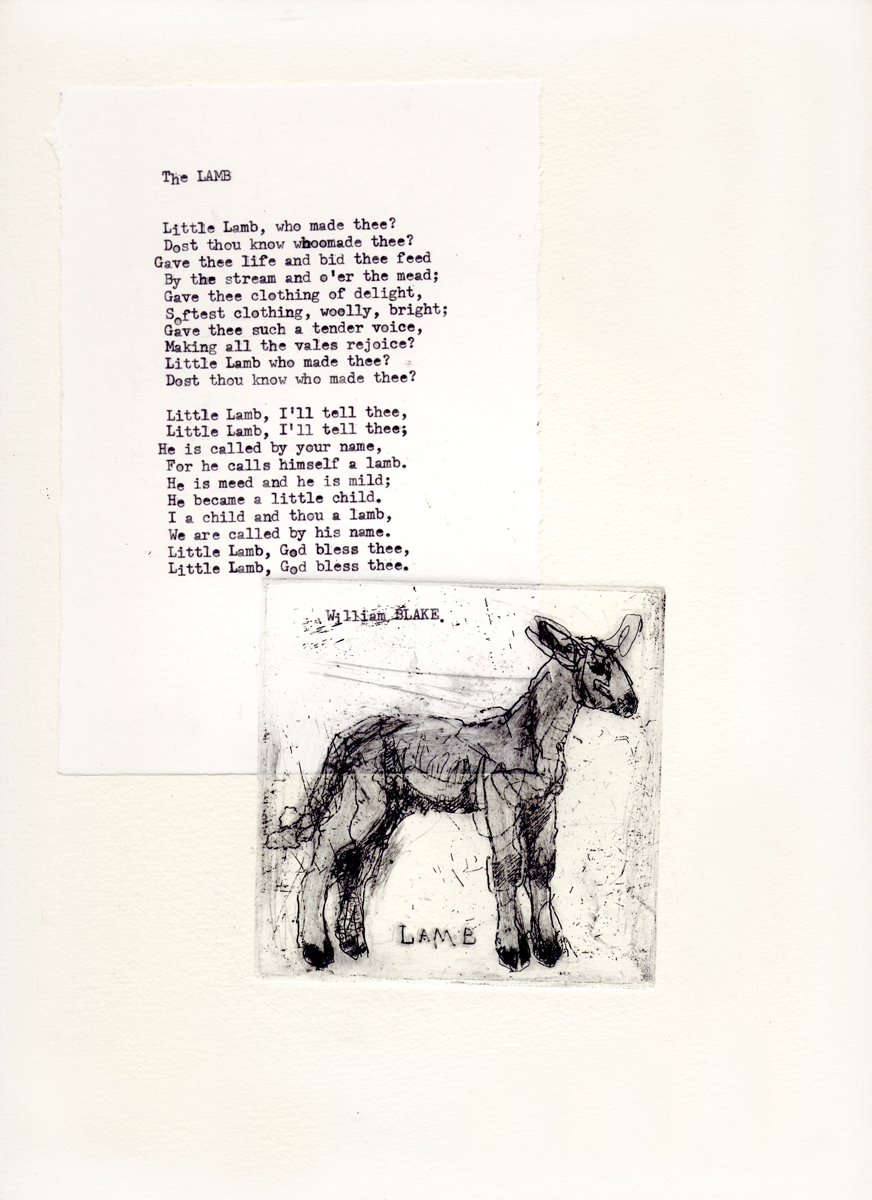 The LAMB
Little Lamb, who made thee?
Dost thou know whoomade thee?
Gave thee life and bid thee feed
By the stream and o'er the mead;
Gave thee clothing of delight,
Softest clothing, woolly, bright;
Gave thee such a tender voice,
Making all the vales rejoice?
Little Lamb who made thee?
Dost thou know who made thee?
Little Lamb, I'll tell thee,
Little Lamb, I'll tell thee;
He is called by your name,
For he calls himself a lamb.
He is meed and he is mild;
He became a little child.
I a child and thou a lamb,
We are called by his name.
Little Lamb, God bless thee,
Little Lamb, God bless thee.
William BLAKE.
LAMB